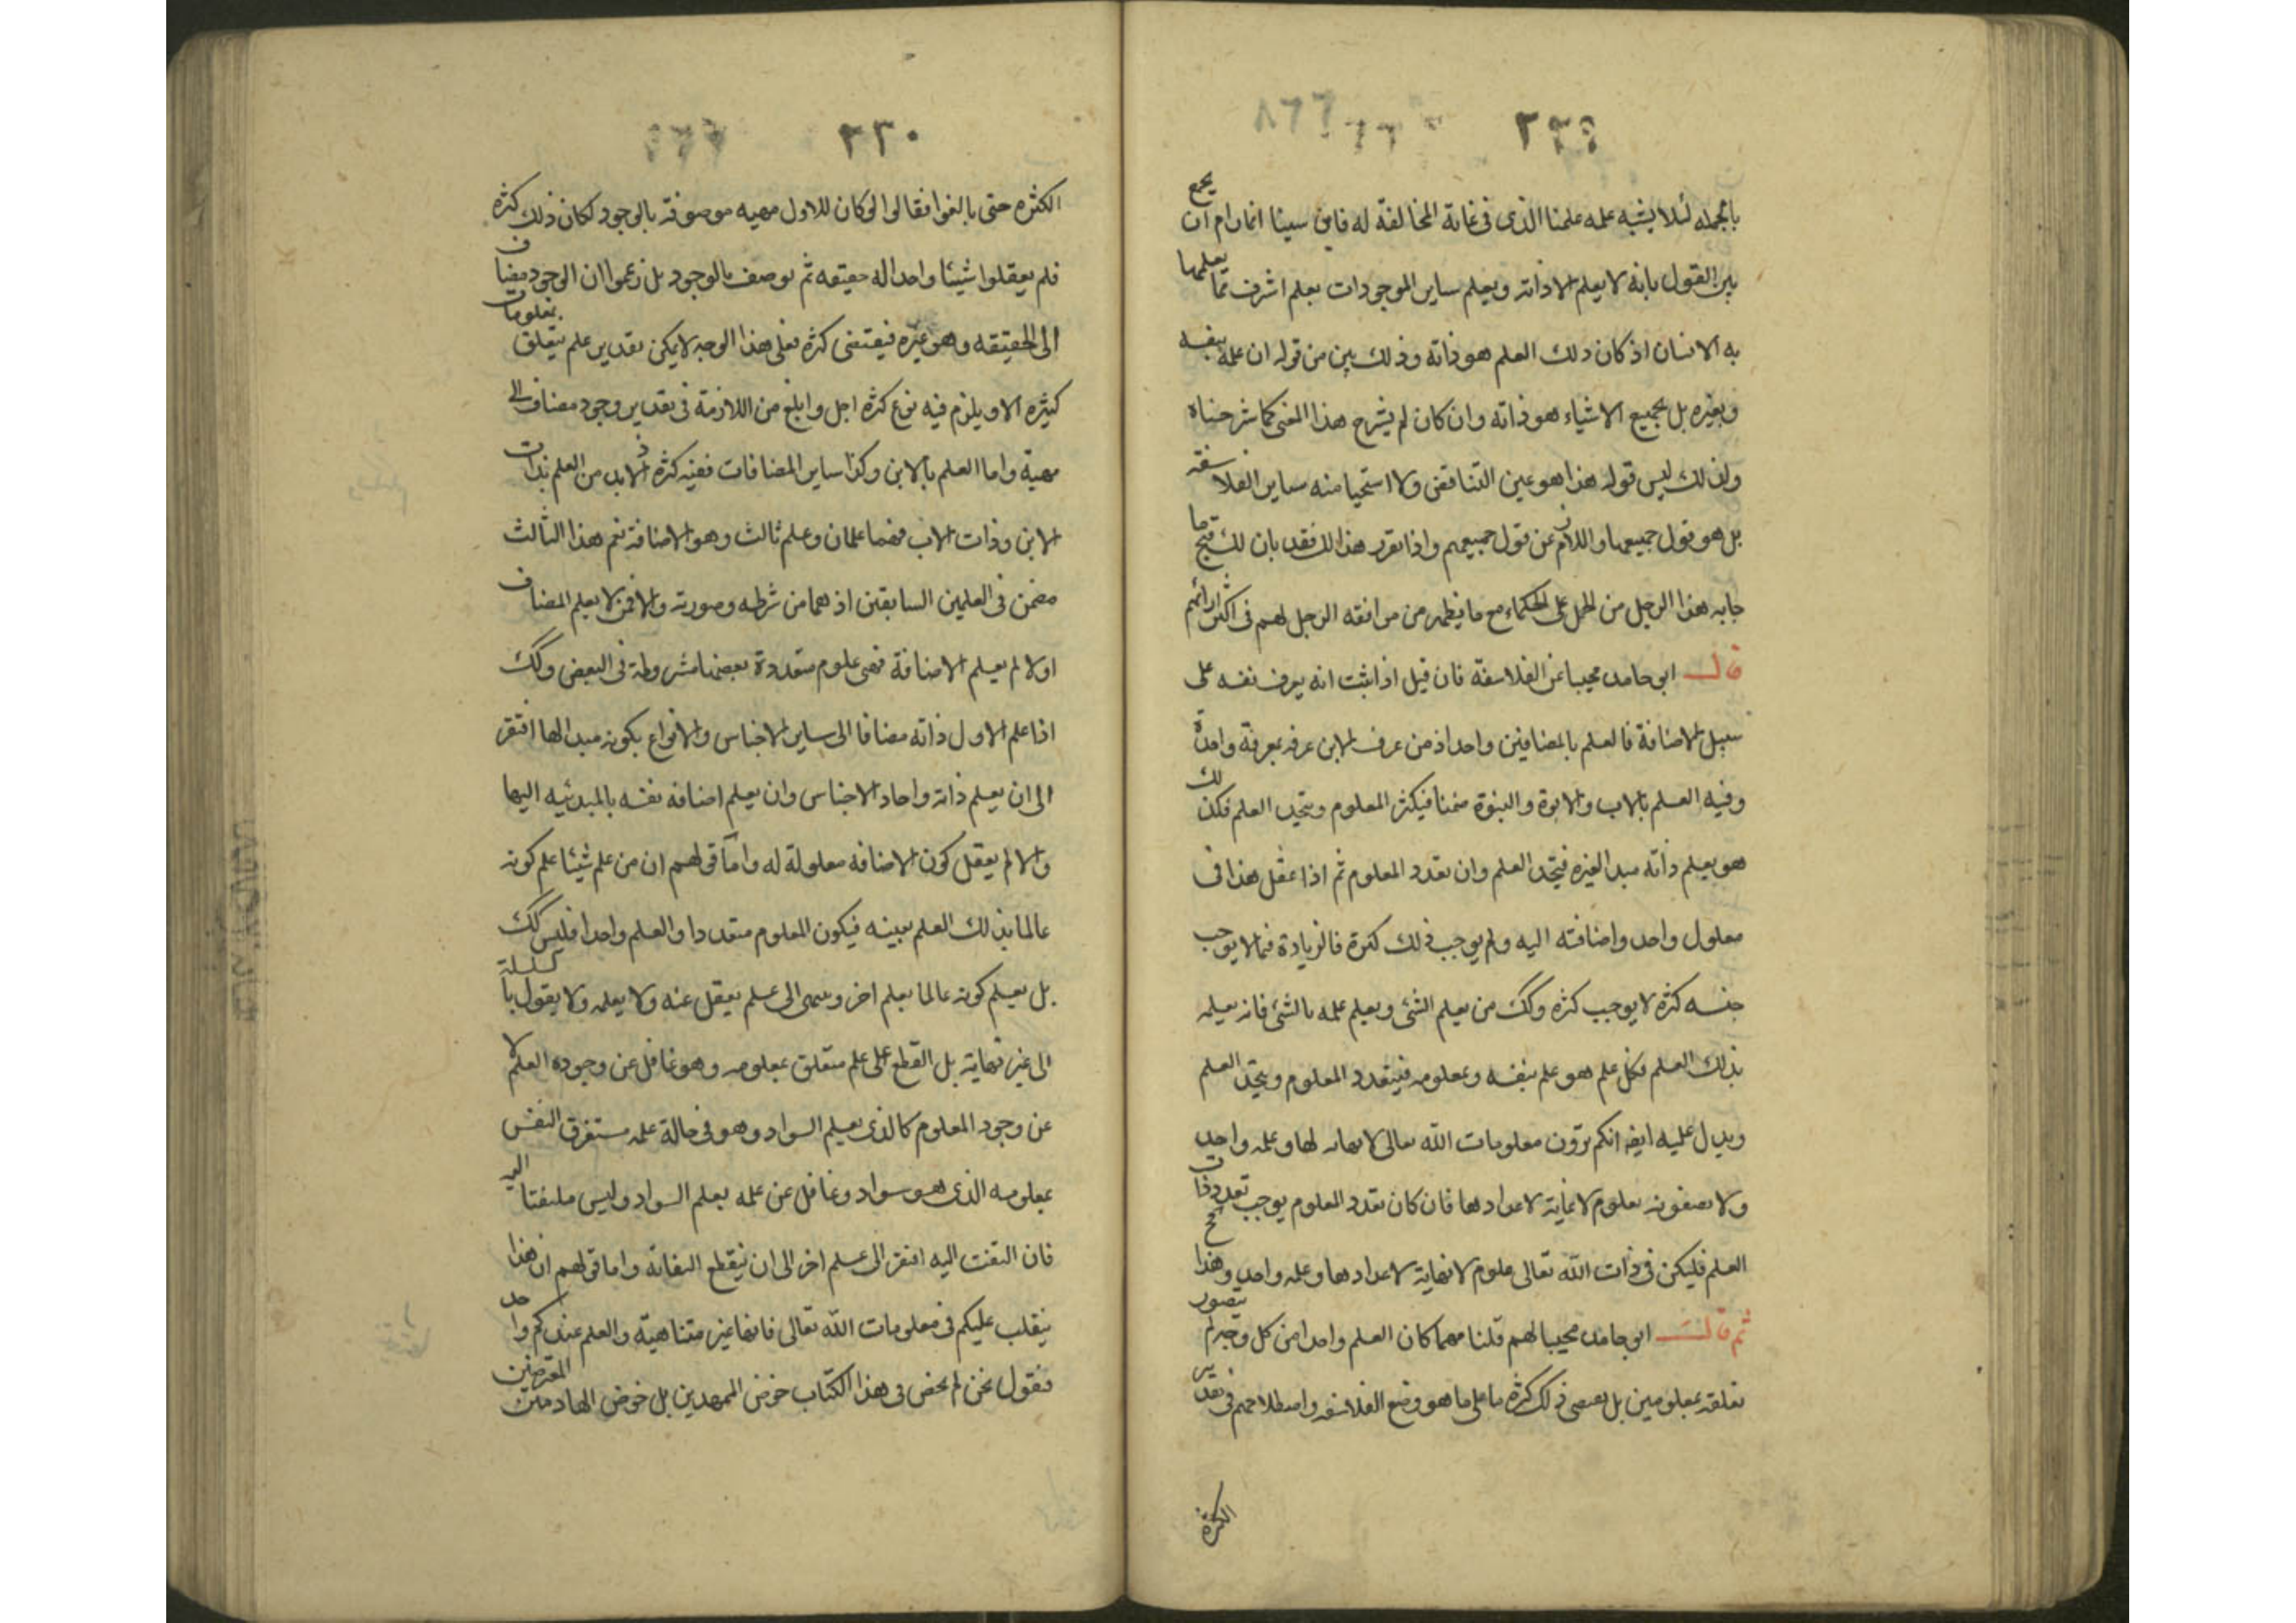 ٢٢٩
بالجملة لئلا يشبه علمه علمنا الذى فى غاية المخالفة له فابن سينا انما رام ان يجمع
بين القول بانه لا يعلم الا ذاته ويعلم ساير الموجودات بعلم اشرف مما يعلمها
به الانسان اذ كان ذلك العلم هو ذاته وذلك بين من قوله ان علمه بنفسه
وبغيره بل بجميع الاشياء هو ذاته وان كان لم يشرح هذا المعنى كما شرحناه
ولذلك ليس قوله هذا هو عين التناقض ولا استحيا منه ساير الفلاسفة
بل هو قول جميعهم او اللازم عن قول جميعهم واذا تقرر هذا لك فقد بان لك قبح ما
جابه هذا الرجل من الحمل على الحكماء مع ما يظهر من موافقة الرجل لهم فى اكثر ارائهم
قال ابو حامد مجيبا عن الفلاسفة فان قيل اذا ثبت انه يعرف نفسه على
سبيل الاضافة فالعلم بالمضافين واحد اذ من عرف الابن عرفه بمعرفة واحدة
وفيه العلم بالاب والابوة والبنوة ضمنا فيكثر المعلوم ويتحد العلم فكذلك
هو يعلم ذاته مبدا لغيره فيتحد العلم وان تعدد المعلوم ثم اذا عقل هذا فى
معلول واحد واضافته اليه ولم يوجب ذلك كثرة فالزيادة فيما لا يوجب
جنسه كثرة لا يوجب كثرة وكك من يعلم الشئ ويعلم علمه بالشئ فانه يعلمه
بذلك العلم فكل علم هو علم بنفسه وبمعلومه فيتعدد المعلوم ويتحد العلم
ويدل عليه ايضا انكم ترون معلومات الله تعالى لا نهاية لها وعلمه واحد
ولا تصفونه بعلوم لا نهاية لاعدادها فان كان تعدد المعلوم يوجب تعدد ذات
العلم فليكن فى ذات الله تعالى علوم لا نهاية لاعدادها وعلمه واحد وهذا مح
ثم قال ابو حامد مجيبا لهم قلنا مهما كان العلم واحدا من كل وجه لم يتصور
تعلقه بمعلومين بل يقتضى ذلك كثرة ما على ما هو وضع الفلاسفة واصطلاحهم فى تقدير
الكثرة
٢٣٠
الكثرة حتى بالغوا فقالوا لو كان للاول مهية موصوفة بالوجود لكان ذلك كثرة
فلم يعقلوا شيئا واحدا له حقيقة ثم يوصف بالوجود بل زعموا ان الوجود مضاف
الى الحقيقة وهو غيره فيقتضى كثرة فعلى هذا الوجه لا يمكن تقدير علم يتعلق بمعلومات
كثيرة الا ويلزم فيه نوع كثرة اجل وابلغ من اللازمة فى تقدير وجود مضاف الى
مهية واما العلم بالابن وكذا ساير المضافات ففيه كثرة اذ لابد من العلم بذات
الابن وذات الاب فهما علمان وعلم ثالث وهو الاضافة نعم هذا الثالث
مضمن فى العلمين السابقين اذ هما من شرطه وصورته والا فمن لا يعلم المضاف
اولا لم يعلم الاضافة فهى علوم متعددة بعضها مشروطة فى البعض وكك
اذا علم الاول ذاته مضافا الى ساير الاجناس والانواع بكونه مبدا لها افتقر
الى ان يعلم ذاته واحاد الاجناس وان يعلم اضافه نفسه بالمبدئيه اليها
والا لم يعقل كون الاضافه معلولة له واما قولهم ان من علم شيئا علم كونه
عالما بذلك العلم بعينه فيكون المعلوم متعددا والعلم واحدا فليس كك
بل يعلم كونه عالما بعلم اخر وينتهى الى علم يغفل عنه ولا يعلمه ولا يقول بالسلسلة
الى غير نهاية بل القطع على علم متعلق بمعلومه وهو غافل عن وجود العلم لا
عن وجود المعلوم كالذى يعلم السواد وهو فى حالة علمه مستغرق النفس
بمعلومه الذى هو سواد وغافل عن علمه بعلم السواد وليس ملتفتا اليه
فان التفت اليه افتقر الى علم اخر الى ان ينقطع التفاته واما قولهم ان هذا
ينقلب عليكم فى معلومات الله تعالى فانها غير متناهية والعلم عندكم واحد
فنقول نحن لم نخض فى هذا الكتاب خوض الممهدين بل خوض الهادمين المعترضين